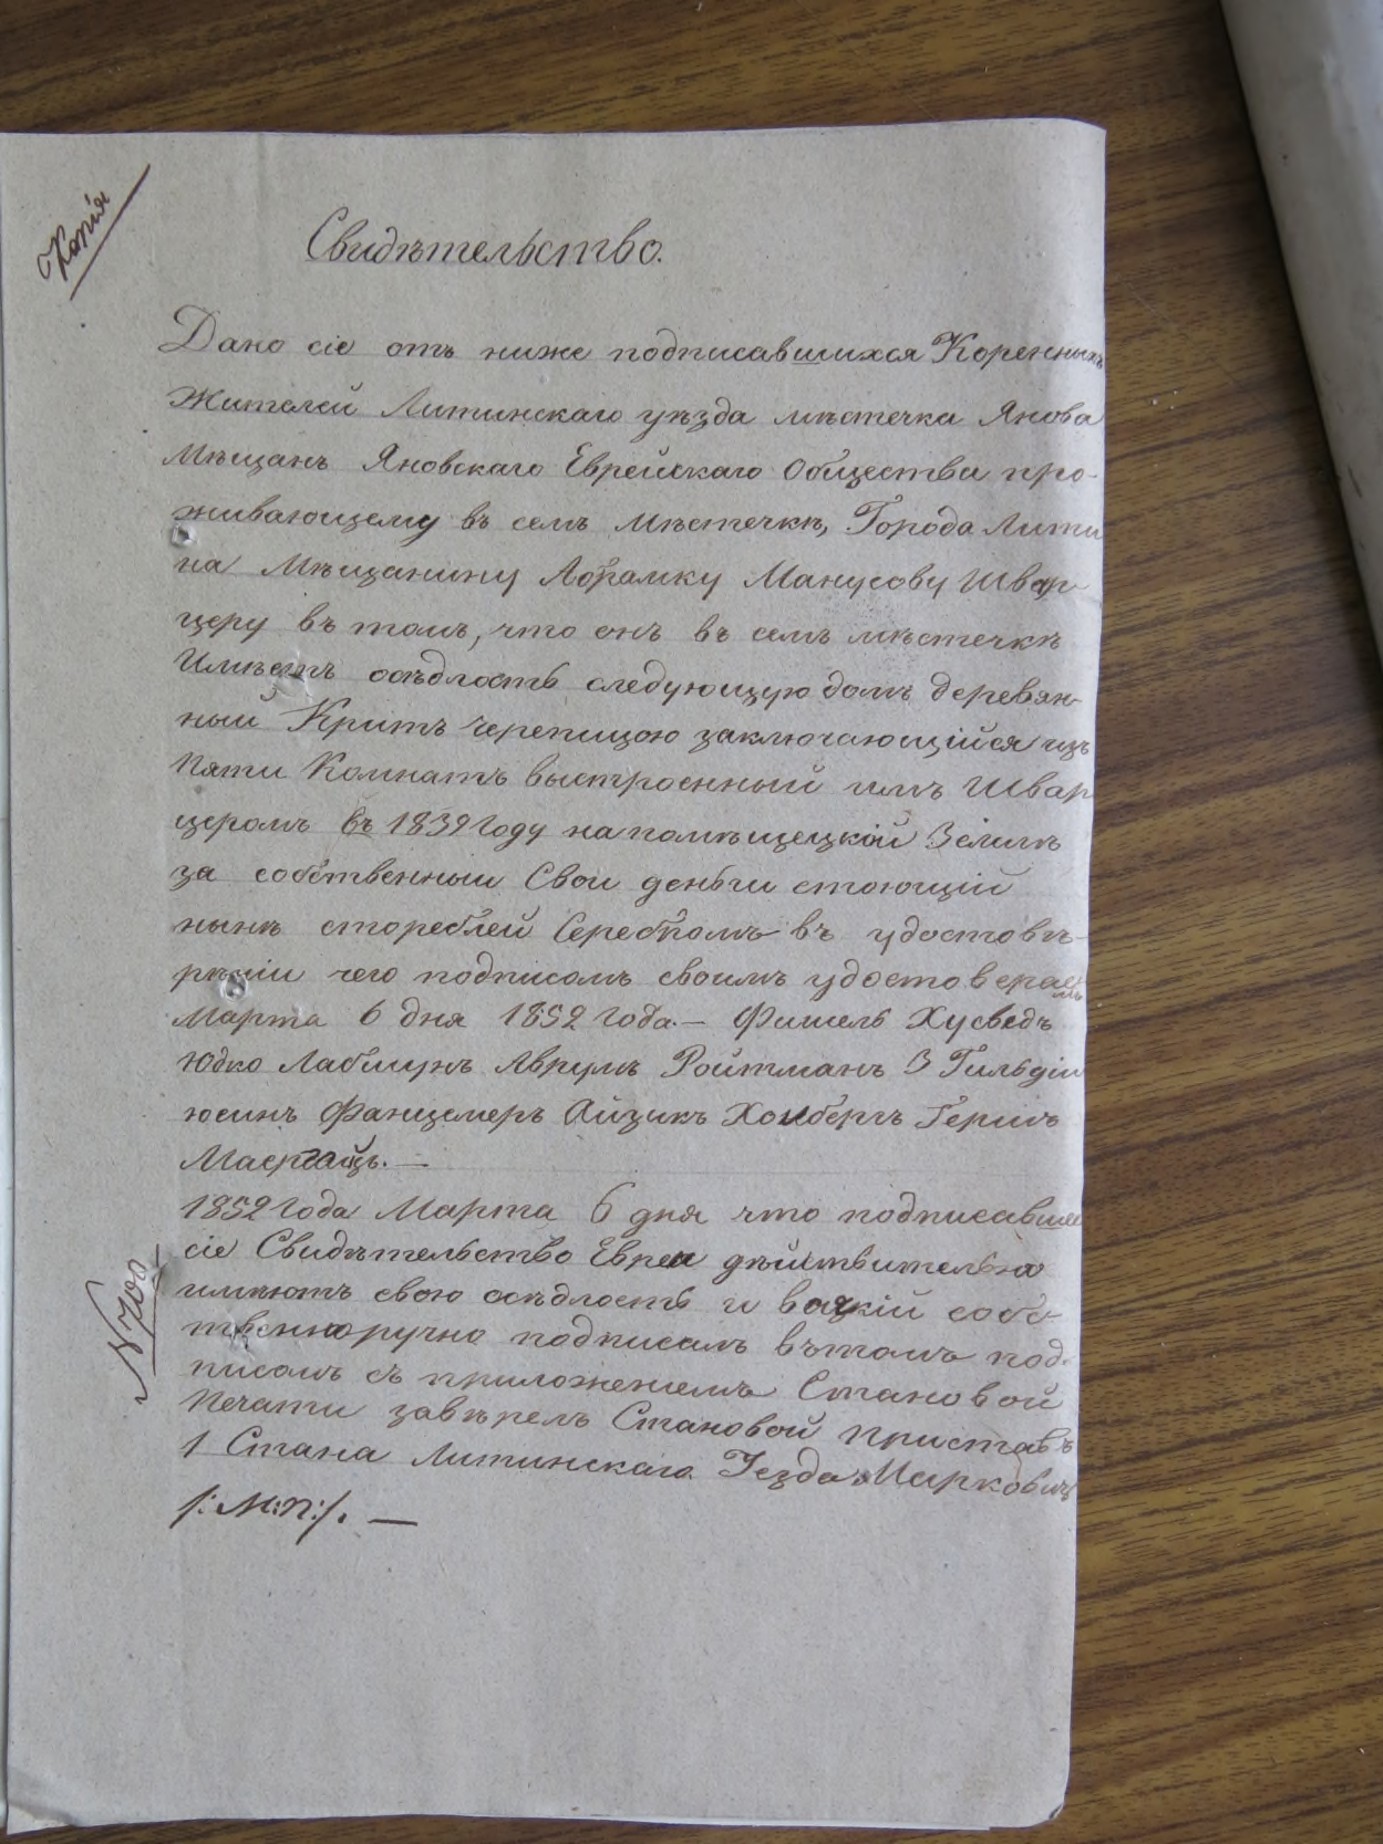 Копія
Свидѣтельство.
Дано сіе отъ ниже подписавшихся Коренныхъ
Жителей Литинскаго уѣзда мѣстечка Янова
Мѣщанъ Яновскаго Еврейскаго Общества про-
живающему въ семъ Мѣстечкѣ, Города Лити
на Мѣщанину Абрамку Манусову Швар
церу въ томъ, что онъ въ семъ мѣстечкѣ
Имѣетъ осѣдлость следующую домъ деревян-
ный Критъ черепицою заключающійся изъ
Пяти Комнатъ выстроенный имъ Швар
церомъ въ 1839 Году на помѣщецкой Землѣ
за собственныи Свои деньги стоющій
нынѣ сторублей Серебромъ въ удостовѣ-
рѣніи чего подписомъ своимъ удостовераемъ
Марта 6 дня 1852 года.— Фишель Хусведъ
Юдко Лабшунъ Аврумъ Ройтманъ 3 Гильдіи
юсинъ Айзикъ Хоибергъ Гершъ
1852 Года Марта 6 дня что подписавшие
сіе Свидѣтельство Евреи дѣйствительно
имѣютъ свою осѣдлость и всякій собс-
твенноручно подписалъ вътомъ под-
писомъ съ приложениемъ Становой
Печати завѣрелъ Становой Приставъ
1 Стана Литинскаго Уезда Марковичъ
/:М:П:/. —
N 700